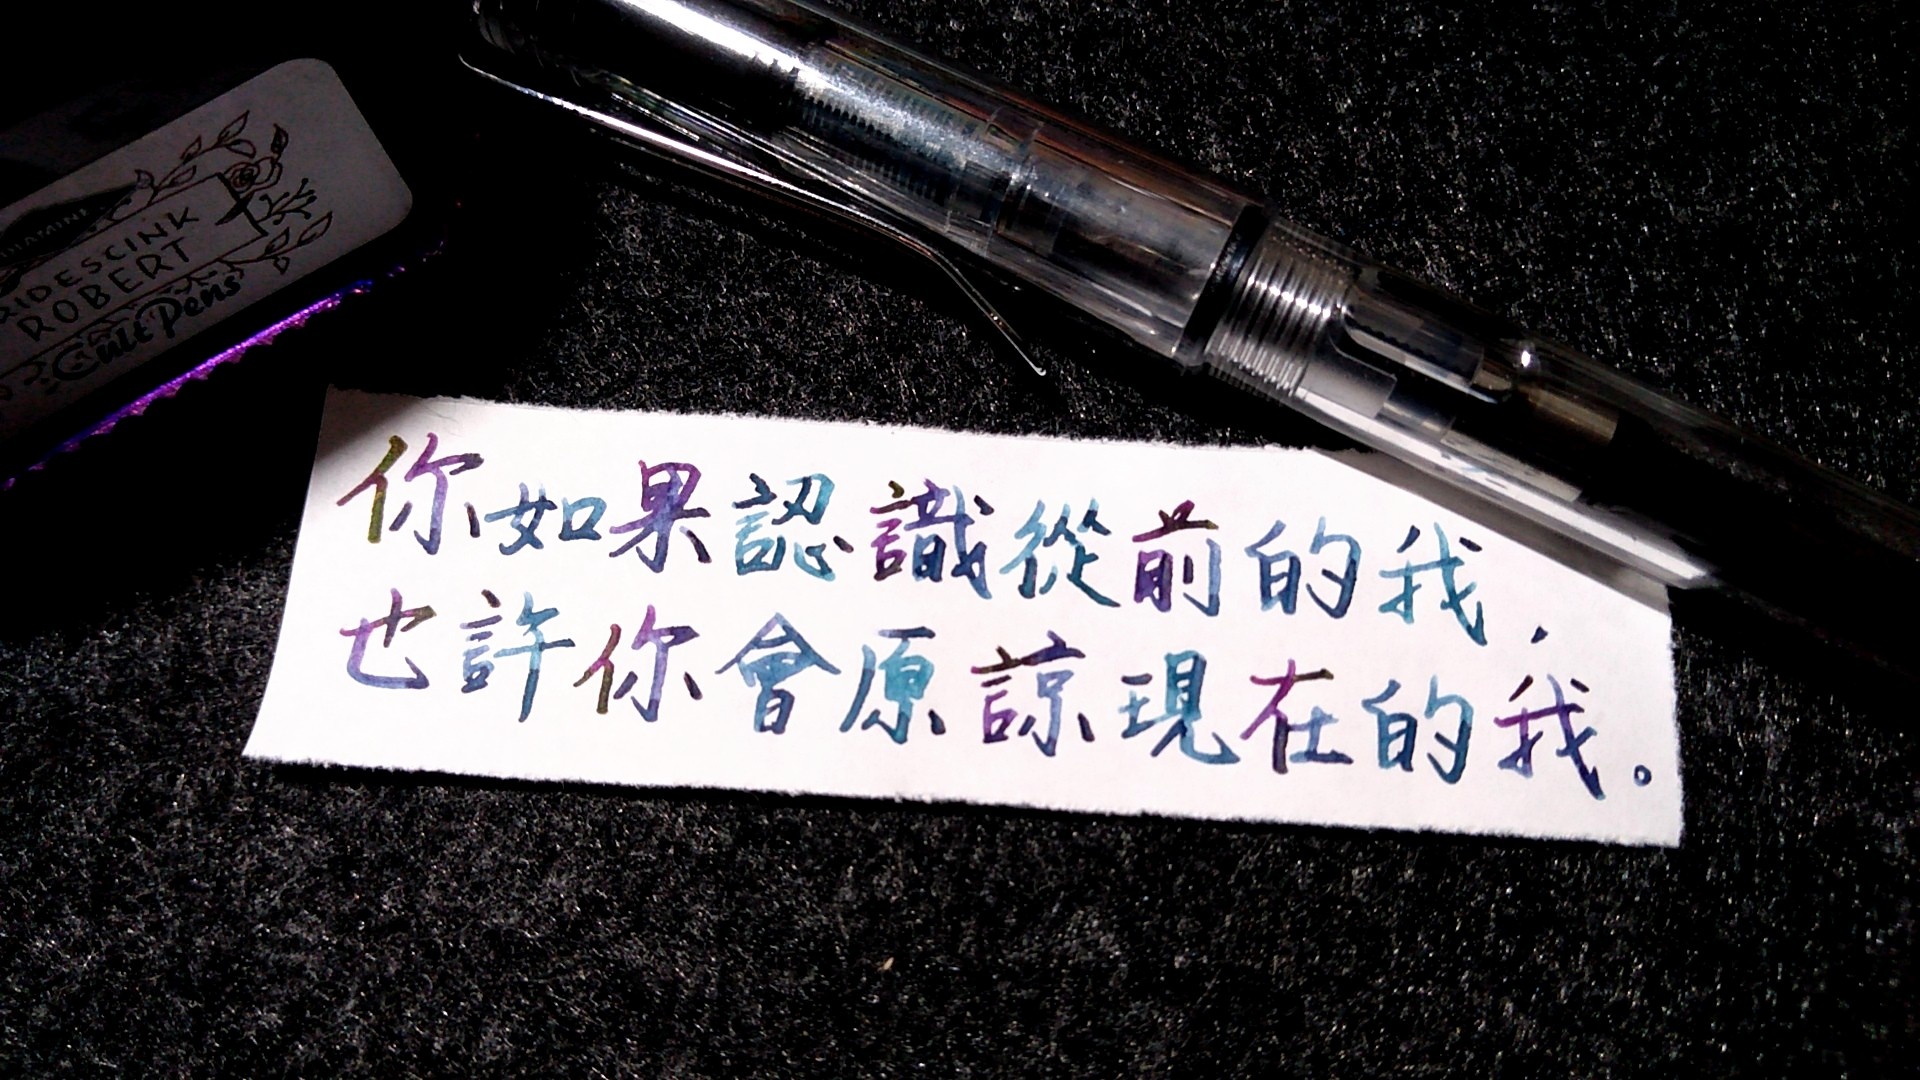 DIAMINE
IRIDESCINK
ROBERT
Cult Pens
你如果認識從前的我，
也許你會原諒現在的我。